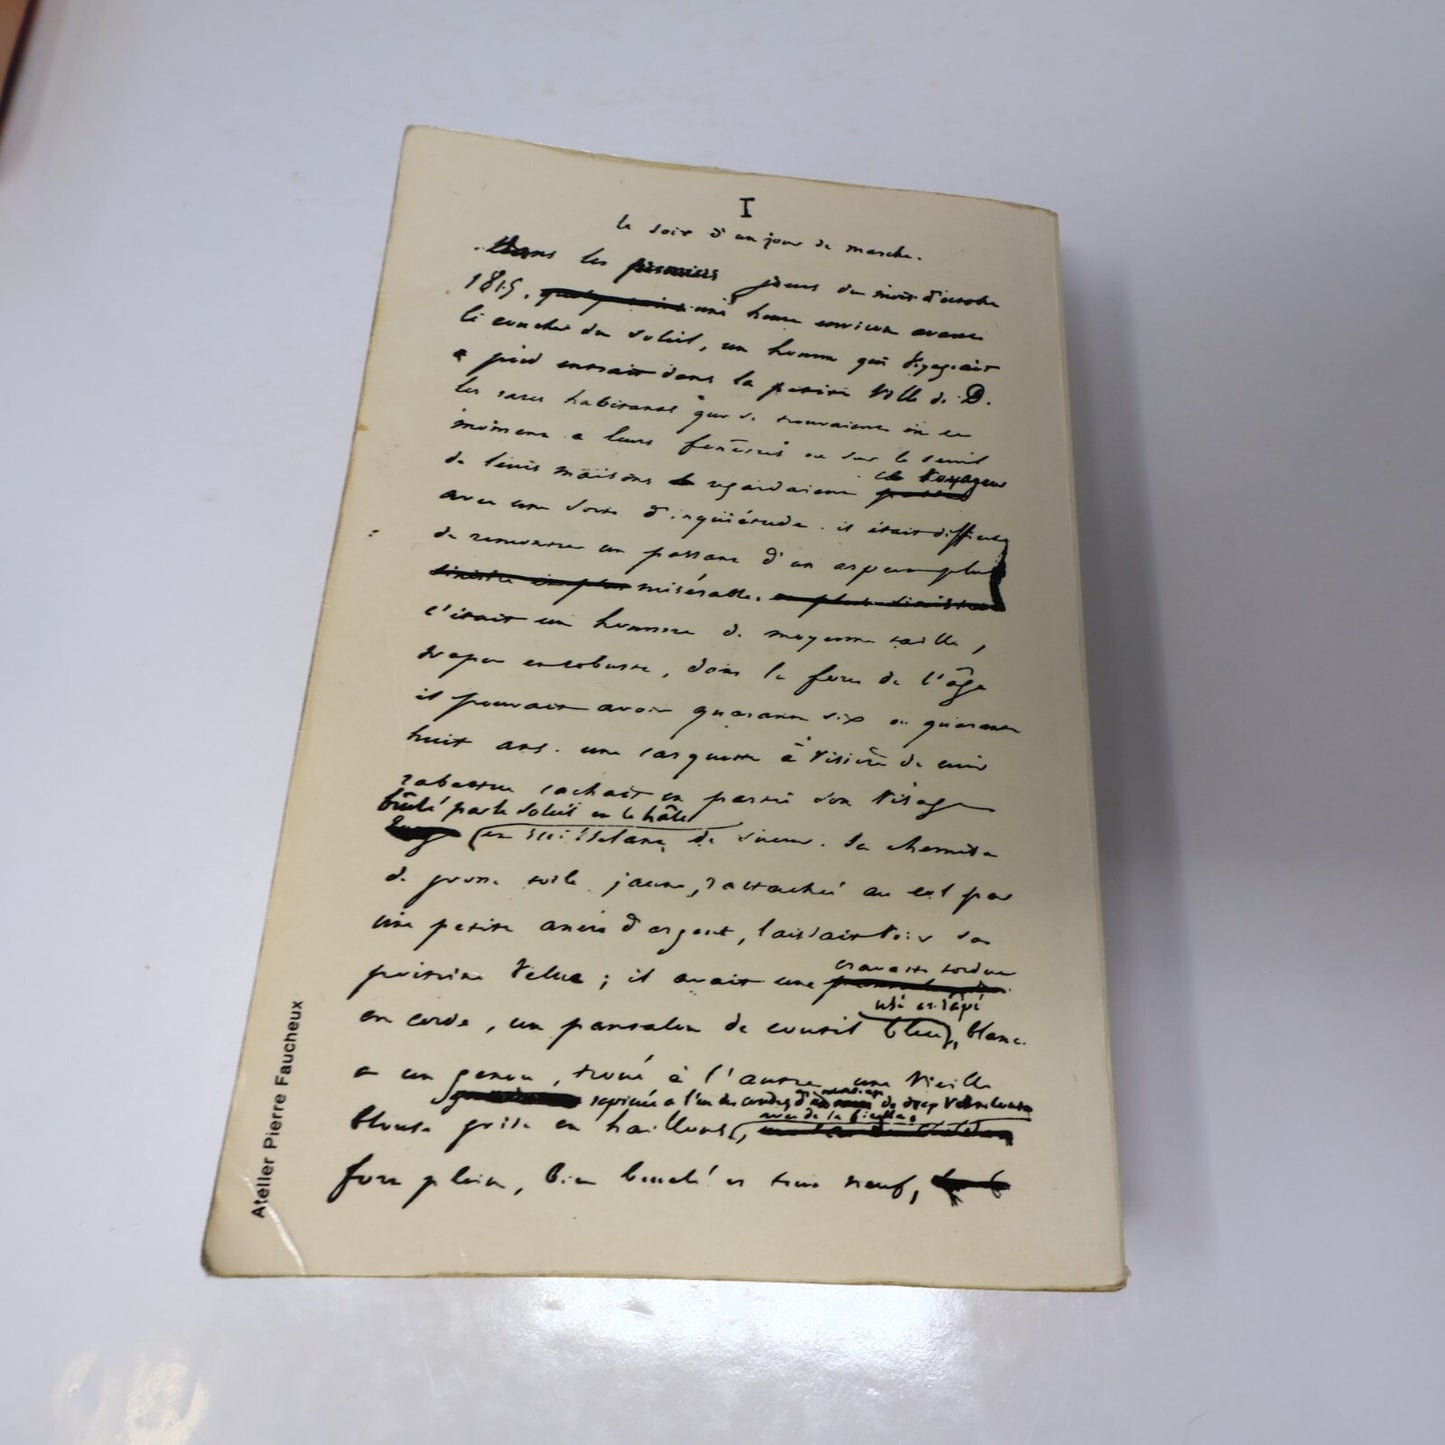 I
le soir d'un jour de marche.
Dans les premiers jours du mois d'octobre
1815, une heure environ avant
le coucher du soleil, un homme qui voyageait
à pied entrait dans la petite ville de D.
les rares habitants qui se trouvaient en ce
moment à leurs fenêtres ou sur le seuil
de leurs maisons regardaient ce voyageur
avec une sorte d'inquiétude. il était difficile
de rencontrer un passant d'un aspect plus
sinistre et plus misérable. et plus sinistre
c'était un homme de moyenne taille,
trapu et robuste, dans la force de l'âge
il pouvait avoir quarante six ou quarante
huit ans. une casquette à visière de cuir
rabattue cachait en partie son visage
brûlé par le soleil et le hâle
et ruisselant de sueur. Sa chemise
de grosse toile jaune, rattachée au col par
une petite ancre d'argent, laissait voir sa
poitrine velue ; il avait une cravate tordue
en corde, un pantalon de coutil bleu, usé et râpé blanc
à un genou, troué à l'autre, une vieille
blouse grise en haillons, rapiécée à l'un des coudes d'un morceau de drap vert cousu
avec de la ficelle,
fort plein, bien bouclé et tout neuf,
Atelier Pierre Faucheux